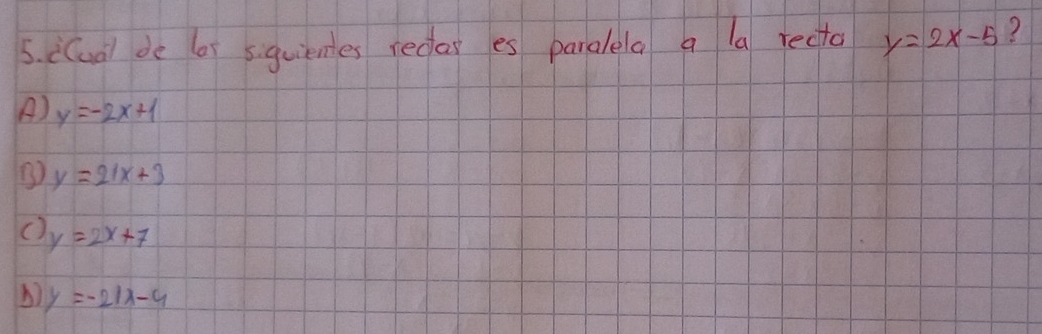 5. ¿Cuál de las siguientes rectas es paralela a la recta y=2x-5?
A) y=-2x+1
B) y=21x+3
C) y=2x+7
D) y=-21x-4